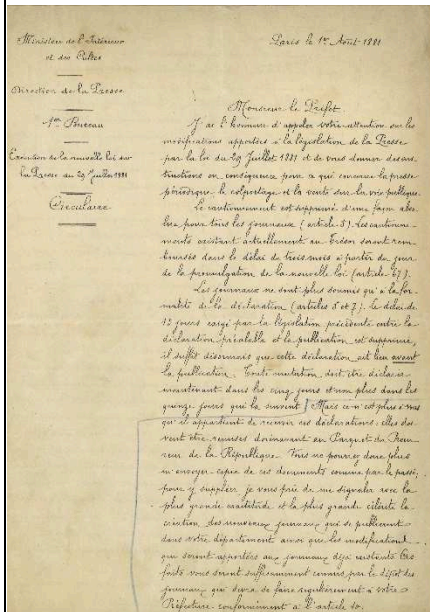 Ministère de l'Intérieur
et des Cultes
Direction de la Presse
1er Bureau
Exécution de la nouvelle loi sur
la Presse du 29 Juillet 1881
Circulaire
Paris le 1er Août 1881
Monsieur le Préfet
J'ai l'honneur d'appeler votre attention sur les
modifications apportées à la législation de la Presse
par la loi du 29 Juillet 1881 et de vous donner des ins-
tructions en conséquence pour ce qui concerne la presse
périodique, le colportage et la vente sur la voie publique.
Le cautionnement est supprimé d'une façon abso-
lue pour tous les journaux (article 5). Les cautionne-
ments existant actuellement au Trésor seront rem-
boursés dans le délai de trois mois à partir du jour
de la promulgation de la nouvelle loi (article 67).
Les journaux ne sont plus soumis qu'à la for-
malité de la déclaration (articles 5 et 7). Le délai de
12 jours exigé par la législation précédente entre la
déclaration préalable et la publication est supprimé,
il suffit désormais que cette déclaration ait lieu avant
la publication. Toute mutation doit être déclarée
maintenant dans les cinq jours et non plus dans les
quinze jours qui la suivent. Mais ce n'est plus à vous
qu'il appartient de recevoir ces déclarations; elles doi-
vent être remises dorénavant au Parquet du Procu-
reur de la République. Vous ne pourrez donc plus
m'envoyer copie de ces documents comme par le passé,
pour y suppléer je vous prie de me signaler avec la
plus grande exactitude et la plus grande célérité la
création des nouveaux journaux qui se publieront
dans votre département ainsi que les modifications
qui seront apportées aux journaux déjà existants. Ces
faits vous seront suffisamment connus par le dépôt des
journaux qui devra se faire régulièrement à votre
Préfecture conformément à l'article 10.